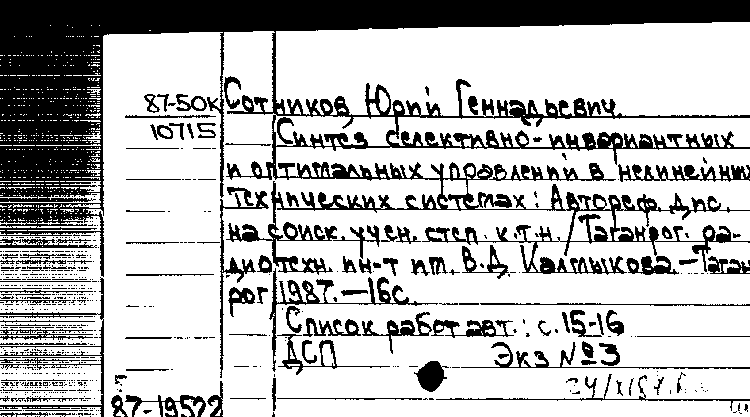 87-50к Сотников, Юрий Геннадьевич.
10715 Синтез селективно-инвариантных
и оптимальных управлений в нелинейных
технических системах: Автореф. дис.
на соиск. учен. степ. к.т.н. / Таганрог. ра-
диотехн. ин-т им. В.Д. Калмыкова. – Таган
рог, 1987. – 16с.
Список работ авт.: с. 15-16
ДСП Экз №3
87-19522